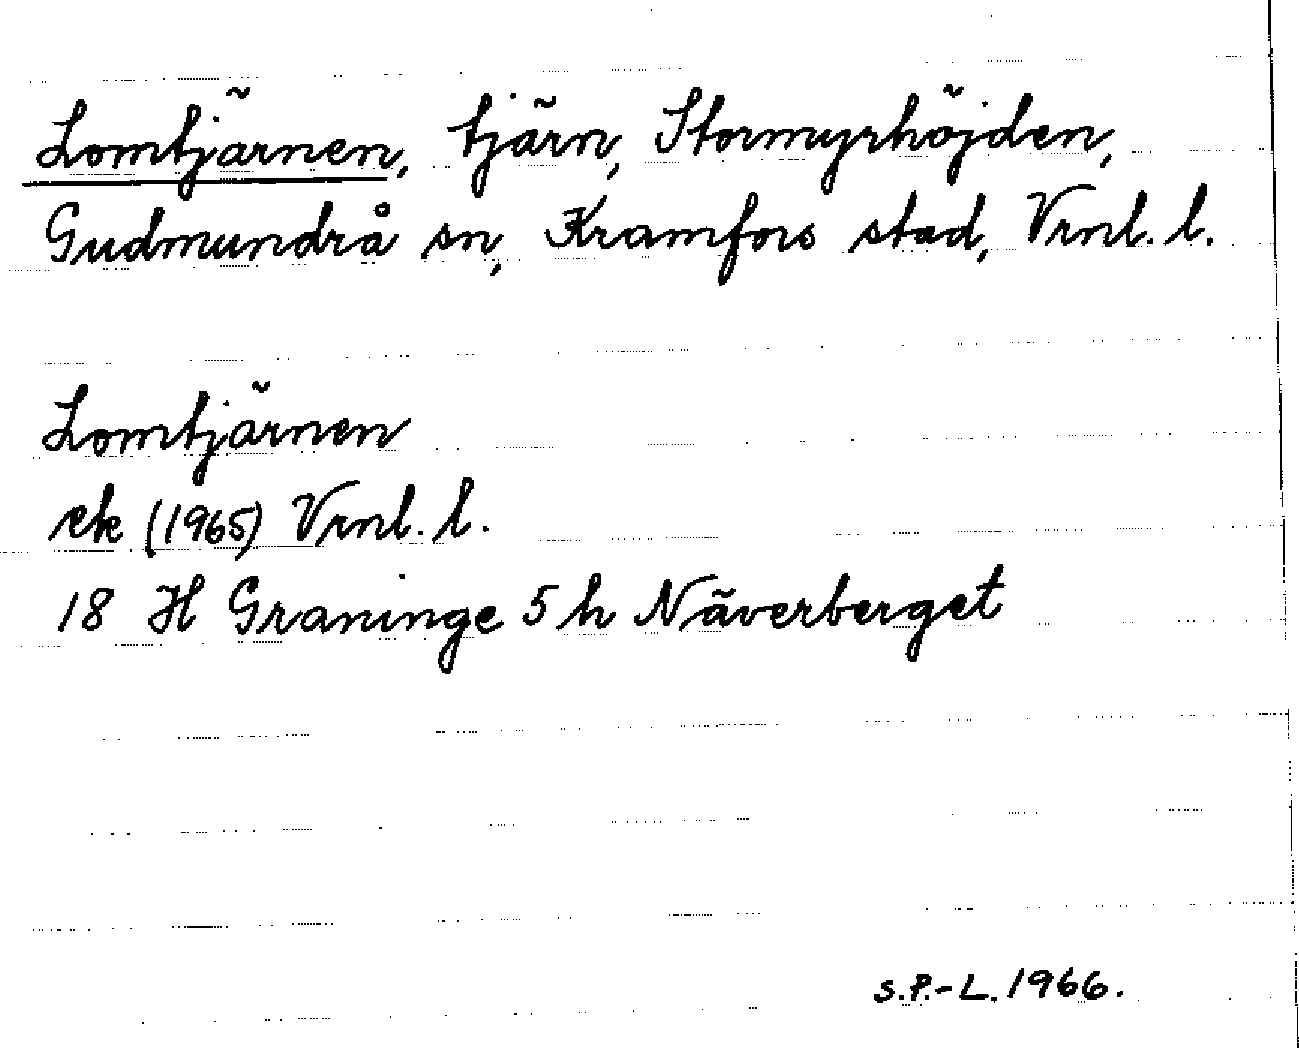 Lomtjärnen, tjärn, Stormyrhöjden,
Gudmundrå sn, Kramfors stad, Vrnl. l.
Lomtjärnen
ek (1965) Vrnl. l.
18 H Graninge 5 h Näverberget
S.P.-L. 1966.